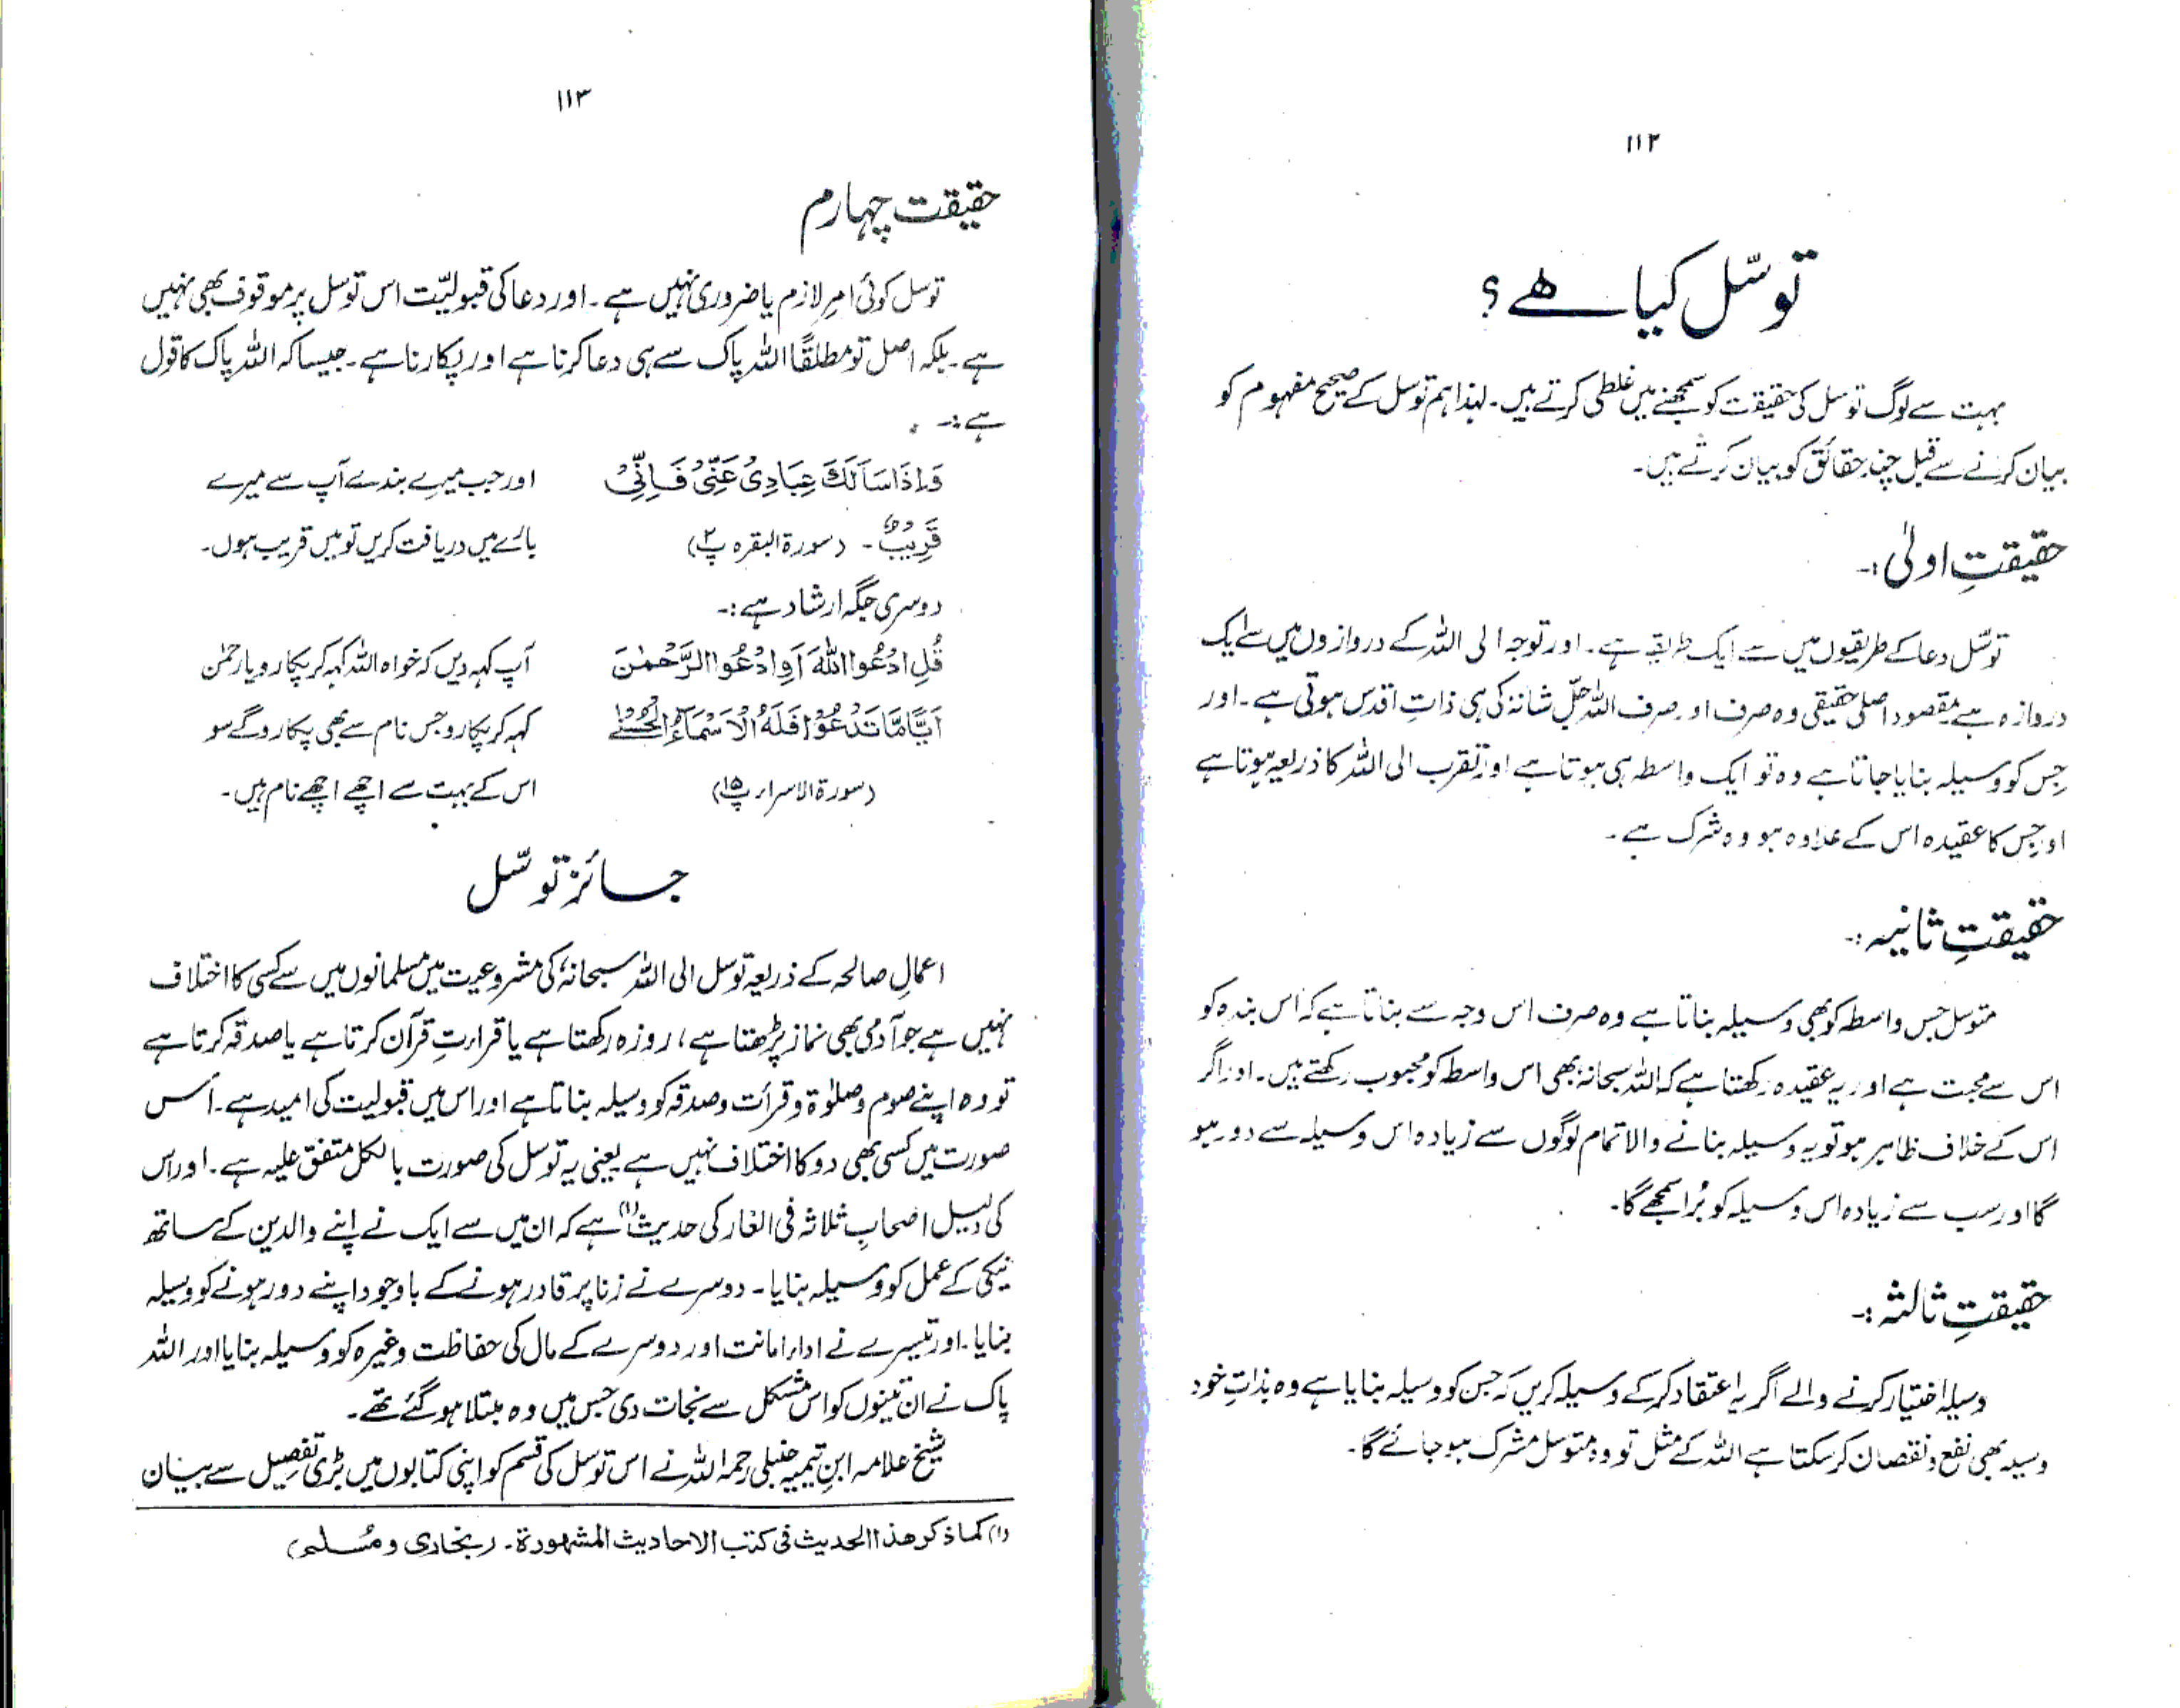 ۱۱۲
توسّل کیا ہے؟
بہت سے لوگ توسل کی حقیقت کو سمجھنے میں غلطی کرتے ہیں۔ لہذا ہم توسل کے صحیح مفہوم کو
بیان کرنے سے قبل چند حقائق کو بیان کرتے ہیں۔
حقیقتِ اولیٰ :۔
توسّل دعا کے طریقوں میں سے ایک طریقہ ہے۔ اور توجہ الی اللہ کے دروازوں میں سے ایک
دروازہ ہے مقصود اصلی حقیقی وہ صرف اور صرف اللہ جلّ شانہ کی ہی ذاتِ اقدس ہوتی ہے۔ اور
جس کو وسیلہ بنایا جاتا ہے وہ تو ایک واسطہ ہی ہوتا ہے اور تقرب الی اللہ کا ذریعہ ہوتا ہے
اور جس کا عقیدہ اس کے علاوہ ہو وہ شرک ہے۔
حقیقتِ ثانیہ :۔
متوسل جس واسطہ کو بھی وسیلہ بناتا ہے وہ صرف اس وجہ سے بناتا ہے کہ اس بندہ کو
اس سے محبت ہے اور یہ عقیدہ رکھتا ہے کہ اللہ سبحانہ بھی اس واسطہ کو محبوب رکھتے ہیں۔ اور اگر
اس کے خلاف ظاہر ہو تو یہ وسیلہ بنانے والا تمام لوگوں سے زیادہ اس وسیلہ سے دور ہو
گا اور سب سے زیادہ اس وسیلہ کو بُرا سمجھے گا۔
حقیقتِ ثالثہ :۔
وسیلہ اختیار کرنے والے اگر یہ اعتقاد کرکے وسیلہ کریں کہ جس کو وسیلہ بنایا ہے وہ بذاتِ خود
وسیلہ بھی نفع و نقصان کرسکتا ہے اللہ کے مثل تو وہ متوسل مشرک ہوجائے گا۔
۱۱۳
حقیقت چہارم
توسل کوئی امرِ لازم یا ضروری نہیں ہے۔ اور دعا کی قبولیّت اس توسل پر موقوف بھی نہیں
ہے۔ بلکہ اصل تو مطلقًا اللہ پاک سے ہی دعا کرنا ہے اور پکارنا ہے۔ جیسا کہ اللہ پاک کا قول
ہے :۔
وَاِذَا سَاَلَكَ عِبَادِيْ عَنِّيْ فَاِنِّيْ اور جب میرے بندے آپ سے میرے
قَرِيْبٌ ۔ (سورۃ البقرہ پ۲) بارے میں دریافت کریں تو میں قریب ہوں۔
دوسری جگہ ارشاد ہے :۔
قُلِ ادْعُوا اللهَ اَوِ ادْعُوا الرَّحْمٰنَ آپ کہہ دیں کہ خواہ اللہ کہہ کر پکارو یا رحمٰن
اَيًّا مَّا تَدْعُوْا فَلَهُ الْاَسْمَآءُ الْحُسْنٰى کہہ کر پکارو جس نام سے بھی پکارو گے سو
(سورۃ الاسراء پ۱۵) اس کے بہت سے اچھے اچھے نام ہیں۔
جائز توسّل
اعمالِ صالحہ کے ذریعہ توسل الی اللہ سبحانہٗ کی مشروعیت میں مسلمانوں میں سے کسی کا اختلاف
نہیں ہے جو آدمی بھی نماز پڑھتا ہے، روزہ رکھتا ہے یا قراءتِ قرآن کرتا ہے یا صدقہ کرتا ہے
تو وہ اپنے صوم وصلوٰۃ و قرأت و صدقہ کو وسیلہ بناتا ہے اور اس میں قبولیت کی امید ہے۔ اس
صورت میں کسی بھی دو کا اختلاف نہیں ہے یعنی یہ توسل کی صورت بالکل متفق علیہ ہے۔ اور اس
کی دلیل اصحابِ ثلاثہ فی الغار کی حدیث (۱) ہے کہ ان میں سے ایک نے اپنے والدین کے ساتھ
نیکی کے عمل کو وسیلہ بنایا۔ دوسرے نے زنا پر قادر ہونے کے باوجود اپنے دور ہونے کو وسیلہ
بنایا۔ اور تیسرے نے اداء امانت اور دوسرے کے مال کی حفاظت وغیرہ کو وسیلہ بنایا اور اللہ
پاک نے ان تینوں کو اس مشکل سے نجات دی جس میں وہ مبتلا ہو گئے تھے۔
شیخ علامہ ابنِ تیمیہ حنبلی رحمہ اللہ نے اس توسل کی قسم کو اپنی کتابوں میں بڑی تفصیل سے بیان
(۱) كما ذكر هذا الحديث فى كتب الاحاديث المشهورة۔ (بخاری و مُسلم)